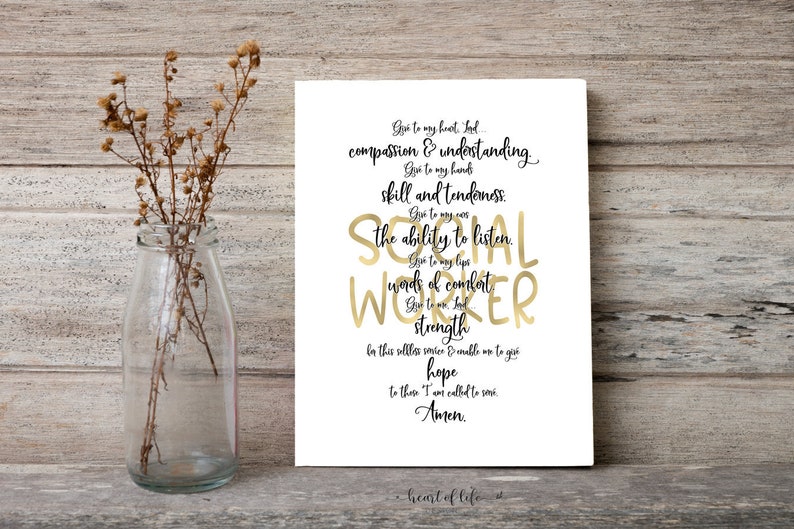 Give to my heart, Lord...
compassion & understanding.
Give to my hands
skill and tenderness.
Give to my ears
SOCIAL
the ability to listen.
Give to my lips
words of comfort.
WORKER
Give to me, Lord...
strength
for this selfless service & enable me to give
hope
to those I am called to serve.
Amen.
heart of life